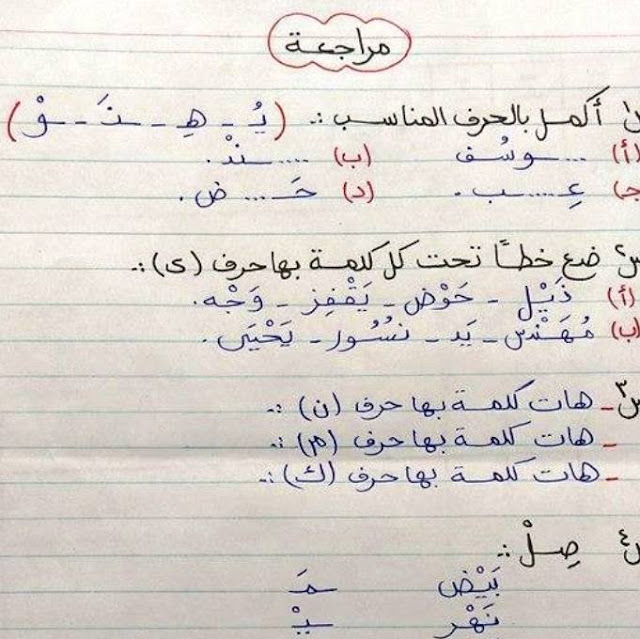 مراجعة
س١ أكمل بالحرف المناسب :. (يُـ - هِـ - ـنَـ - ـوْ)
(أ) .... وسُف (ب) .... ـنْد.
(جـ) عِـ .... ـب. (د) حَـ .... ض.
س٢ ضع خطًا تحت كل كلمة بها حرف (ى) :.
(أ) ذَيْل - حَوْض - يَقْفِز - وَجْه.
(ب) مُهَنْدِس - يَد - نُسُور - يَحْيَى.
س٣ - هات كلمة بها حرف (ن) :.
- هات كلمة بها حرف (م) :.
- هات كلمة بها حرف (ك) :.
س٤ صِلْ :.
بَيْض مَـ
نَهْر ـيْـ